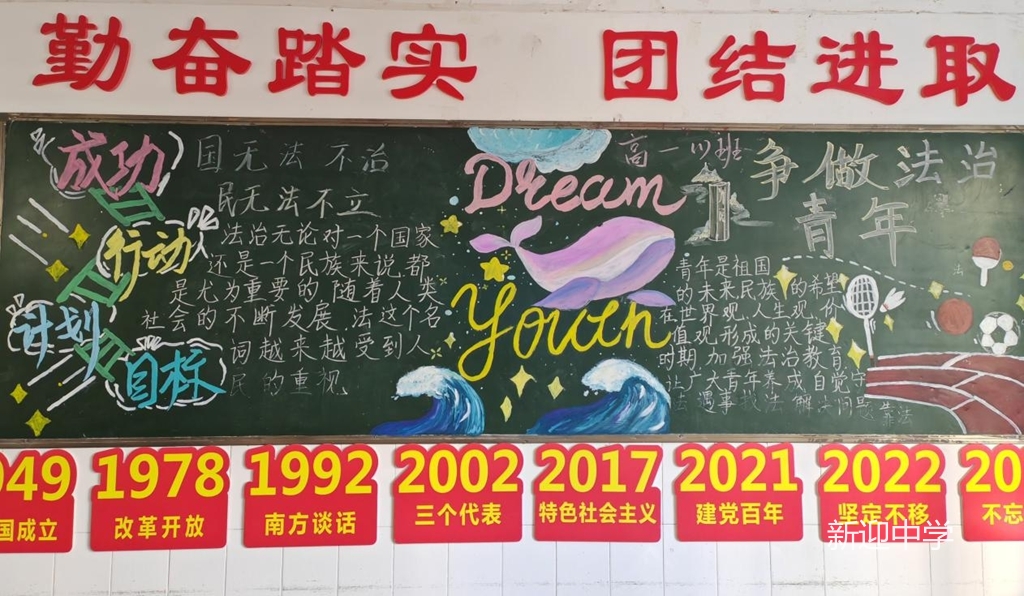 勤奋踏实 团结进取
成功
行动
计划
目标
国无法不治
民无法不立
法治无论对一个国家
还是一个民族来说都
是尤为重要的,随着人类
社会的不断发展,法这个名
词越来越受到人
民的重视
Dream
Youth
高一(1)班
争做法治
青年
青年是祖国
的未来,民族的希望
在世界观,人生观,价
值观形成的关键
时期,加强法治教育
让广大青年养成自觉守
法,遇事找法,解决问题靠法
949
国成立
1978
改革开放
1992
南方谈话
2002
三个代表
2017
特色社会主义
2021
建党百年
2022
坚定不移
20
不忘
新迎中学